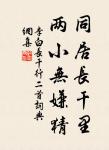 同居長千里
兩小無嫌猜
李白長干行二首詞典
網集